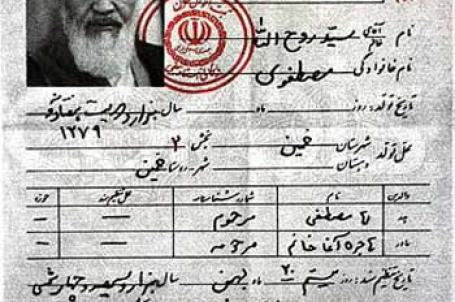 نام آقای خانم سید روح الله
نام خانوادگی مصطفوی
تاریخ تولد: روز ماه سال هزار و دویست
۱۲۷۹
محل تولد شهرستان خمین بخش ۲
دهستان شهر - روستا خمین
والدین نام شماره شناسنامه محل تنظیم سند حوزه
پدر مصطفی مرحوم — —
مادر هاجره آغا خانم مرحومه — —
تاریخ تنظیم سند: روز بیستم ۲۰ ماه بهمن سال هزار و سیصد و چهارشمسی